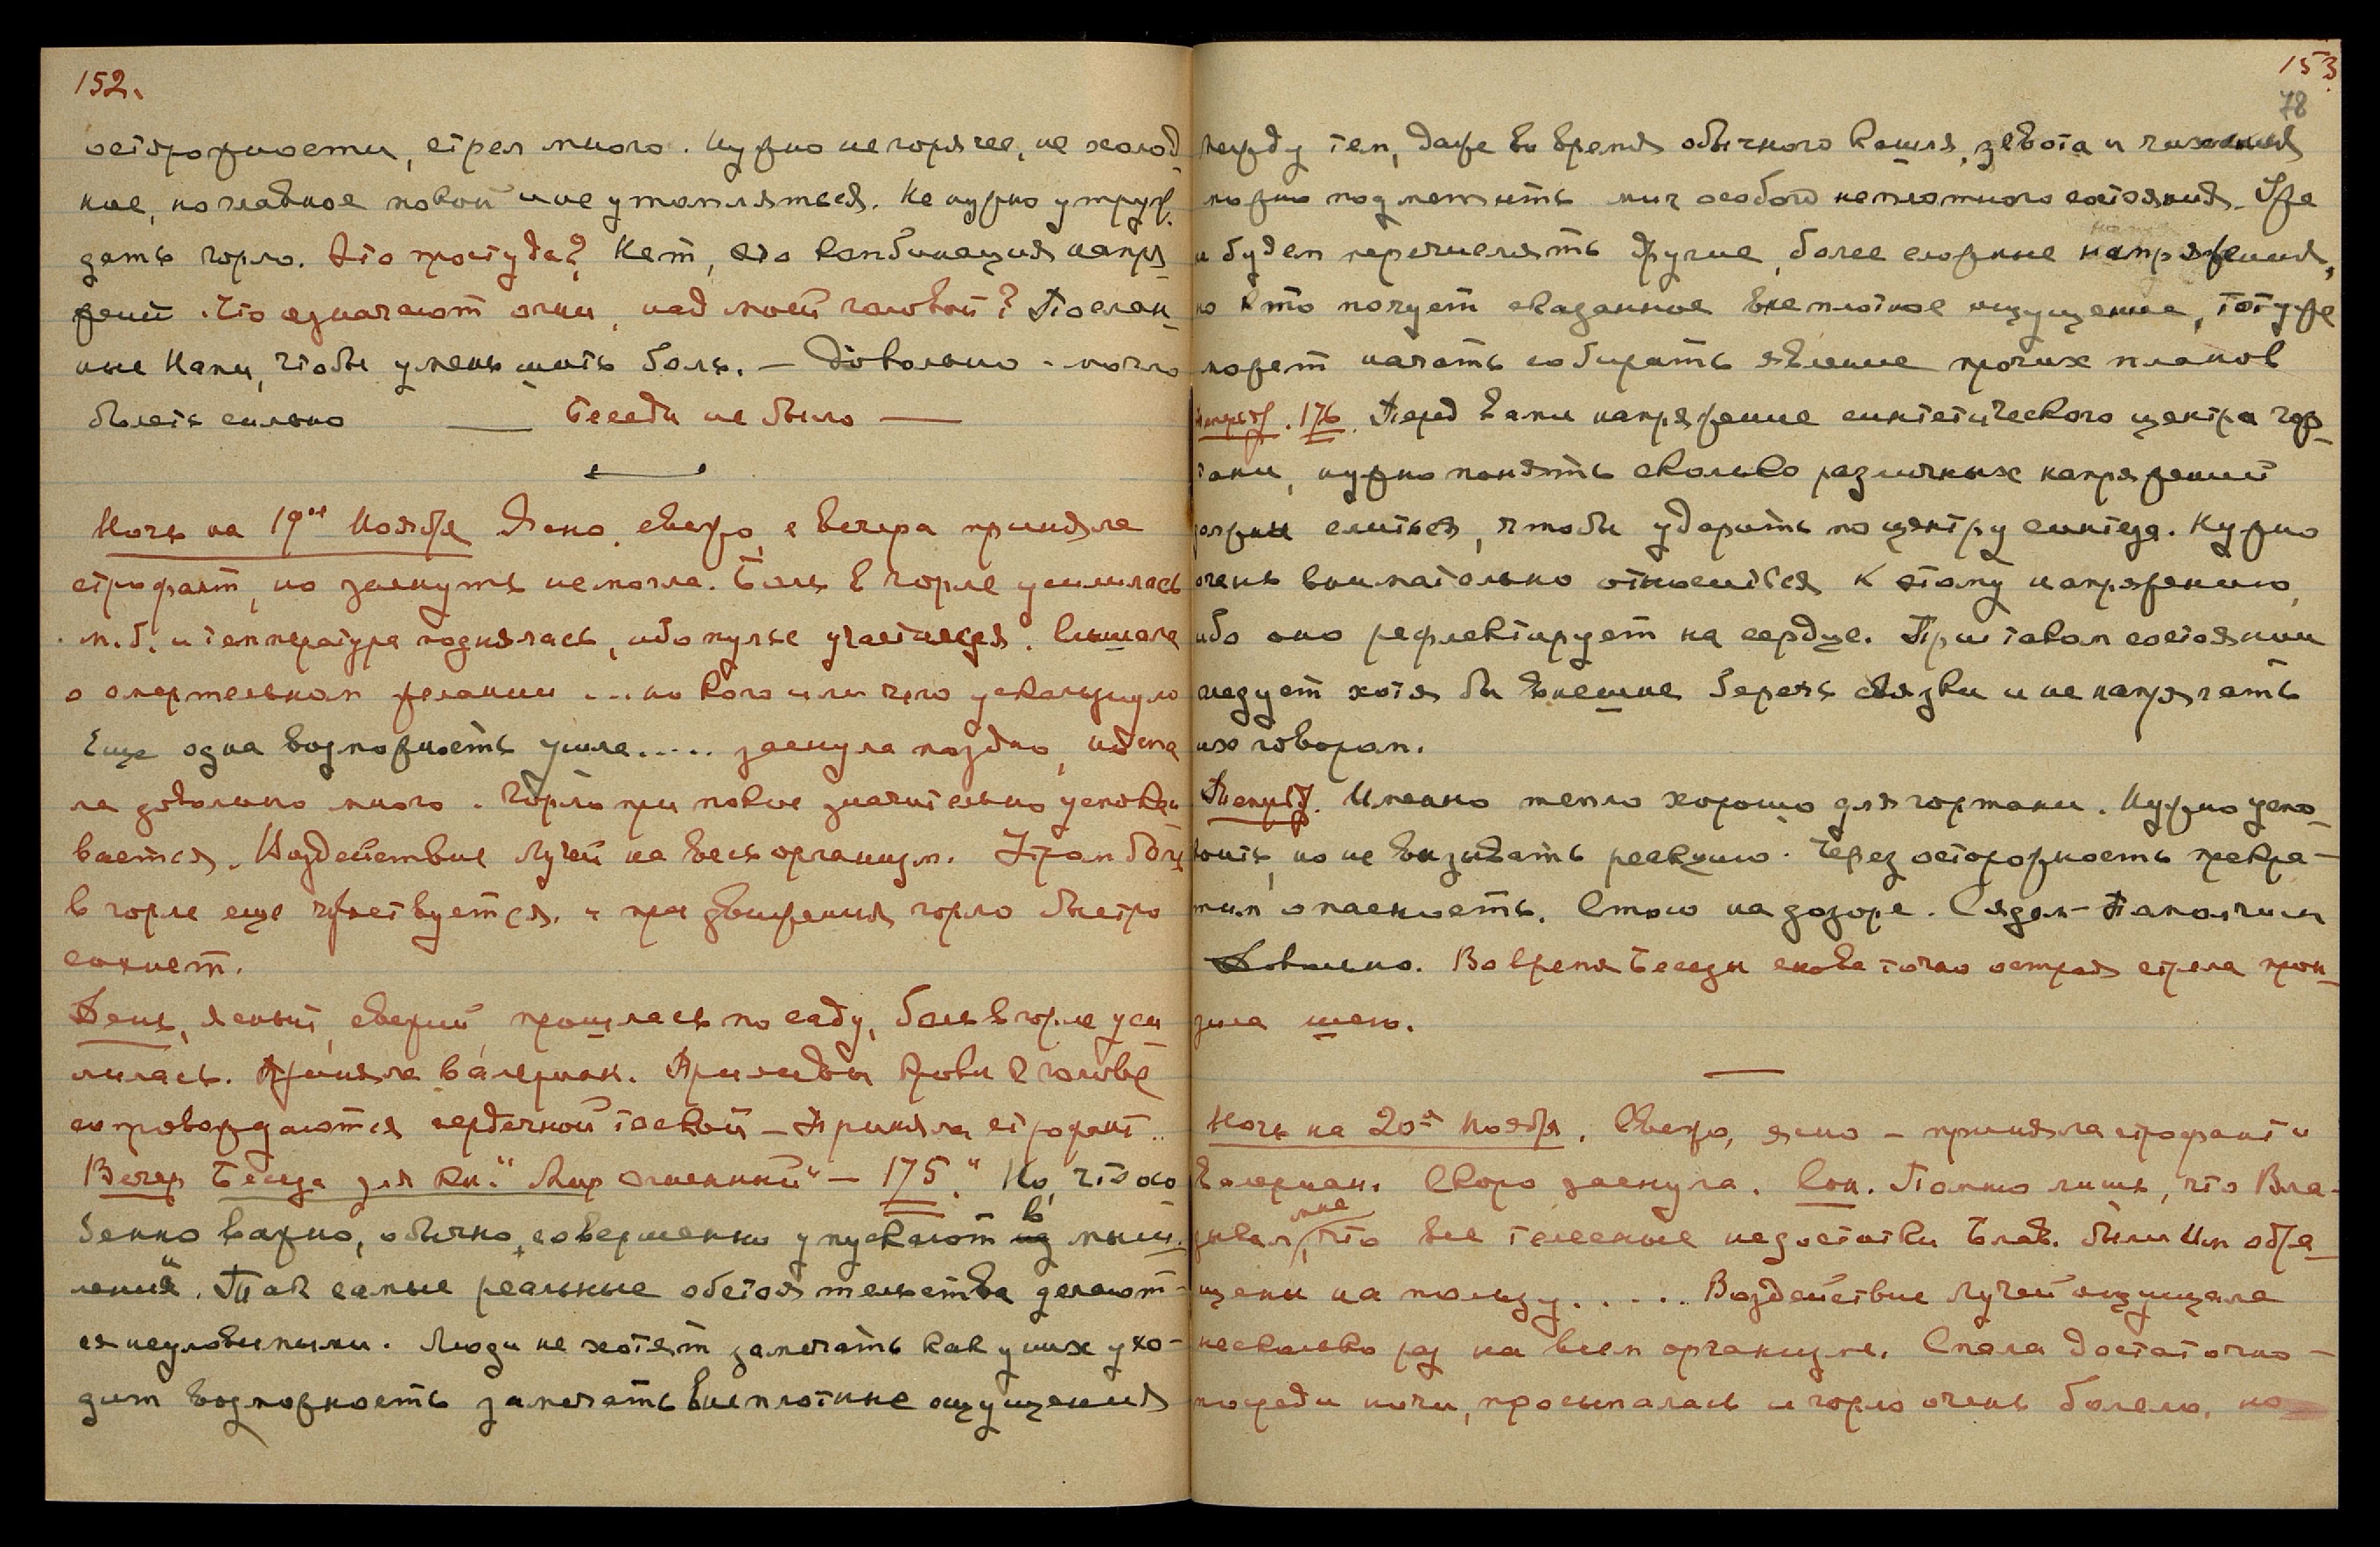 152.
осторожности, стрел много. Нужно не горячее, не холод-
ное, но главное покой и не утомляться. Не нужно утруж-
дать горло. Это простуда? Нет, это комбинация напря-
жений. Что означают огни, над моей головой? Послан-
ные Нами, чтобы уменьшить боль. — Довольно - могло
болеть сильно — Беседы не было —
Ночь на 19ое Ноября Ясно, свежо, с вечера приняла
строфант, но заснуть не могла. Боль в горле усилилась
м.б. и температура поднялась, ибо пульс участился. Слышала
о смертельном желании ... но кого или чего ускользнуло
Еще одна возможность ушла..... заснула поздно, но спа
ла довольно много. Горло при покое значительно успокаи
вается. Воздействие Лучей на весь организм. Утром боль
в горле еще чувствуется. и при движении горло быстро
сохнет.
День, ясный, свежий, прошлась по саду, боль в горле уси
лилась. Приняла валериан. Приливы крови к голове
сопровождаются сердечной тоской — Приняла строфант..
Вечер Беседа для кн. "Мир Огненный" — 175." Но, что осо
бенно важно, обычно, совершенно упускают из в мыш-
лений. Так самые реальные обстоятельства делают-
ся неуловимыми. Люди не хотят замечать как у них ухо-
дит возможность замечать внеплотные ощущения
153
78
между тем, даже во время обычного кашля, зевота и чихания
можно подметить миг особого неплотного состояния. Не
буду перечислять другие, более сложные напряжения,
но кто почует сказанное внеплотное ощущение, тот уже
может начать собирать явление прочих планов
Напряж. 176. Перед вами напряжение синтетического центра гор-
тани, нужно понять сколько различных напряжений
должны слиться, чтобы ударить по центру синтеза. Нужно
очень внимательно относиться к этому напряжению,
ибо оно рефлектирует на сердце. При таком состоянии
следует хотя бы внешне беречь связки и не напрягать
их говором.
Именно тепло хорошо для гортани. Нужно успо-
коить, но не вызывать реакцию. Через осторожность прекра-
тим опасность. Стою на дозоре. Сядем — Помолчим
Довольно. Во время Беседы снова точно острая стрела прон-
зила шею.
Ночь на 20ое Ноября. Свежо, ясно — приняла строфант и
валериан. Скоро заснула. Сон. Помню лишь, что Вла-
дыка мне, что все телесные недостатки Блав. были Им обра-
щены на пользу..... Воздействие Лучей ощущала
несколько раз на всем организме. Спала достаточно —
посреди ночи, просыпалась и горло очень болело, но